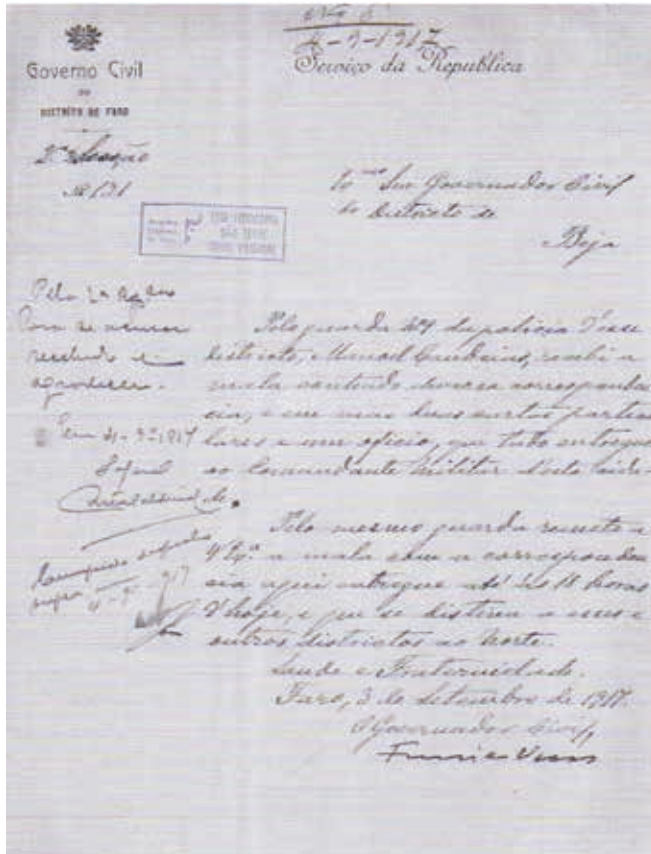 4-9-1917
Serviço da Republica
Governo Civil
DO
DISTRITO DE FARO
2ª Secção
Nº 131
Exmo Snr Governador Civil
do districto de
Beja
Pela 2ª
Para se acusar
recebido e
agradecer.
Em 4-9-1917
Pelo guarda da policia d'esse
districto, Manoel, recebi a
mala contendo diversa corresponden
cia, e em mao duas cartas particu
lares e um oficio, que tudo entreguei
ao Comandante militar desta cida-
de.
Pelo mesmo guarda remeto a
V. Exª a mala com a corresponden
cia aqui entregue até ás 11 horas
d'hoje, e que se destina a esse e
outros districtos ao norte.
Saude e Fraternidade.
Faro, 3 de Setembro de 1917.
O Governador Civil,